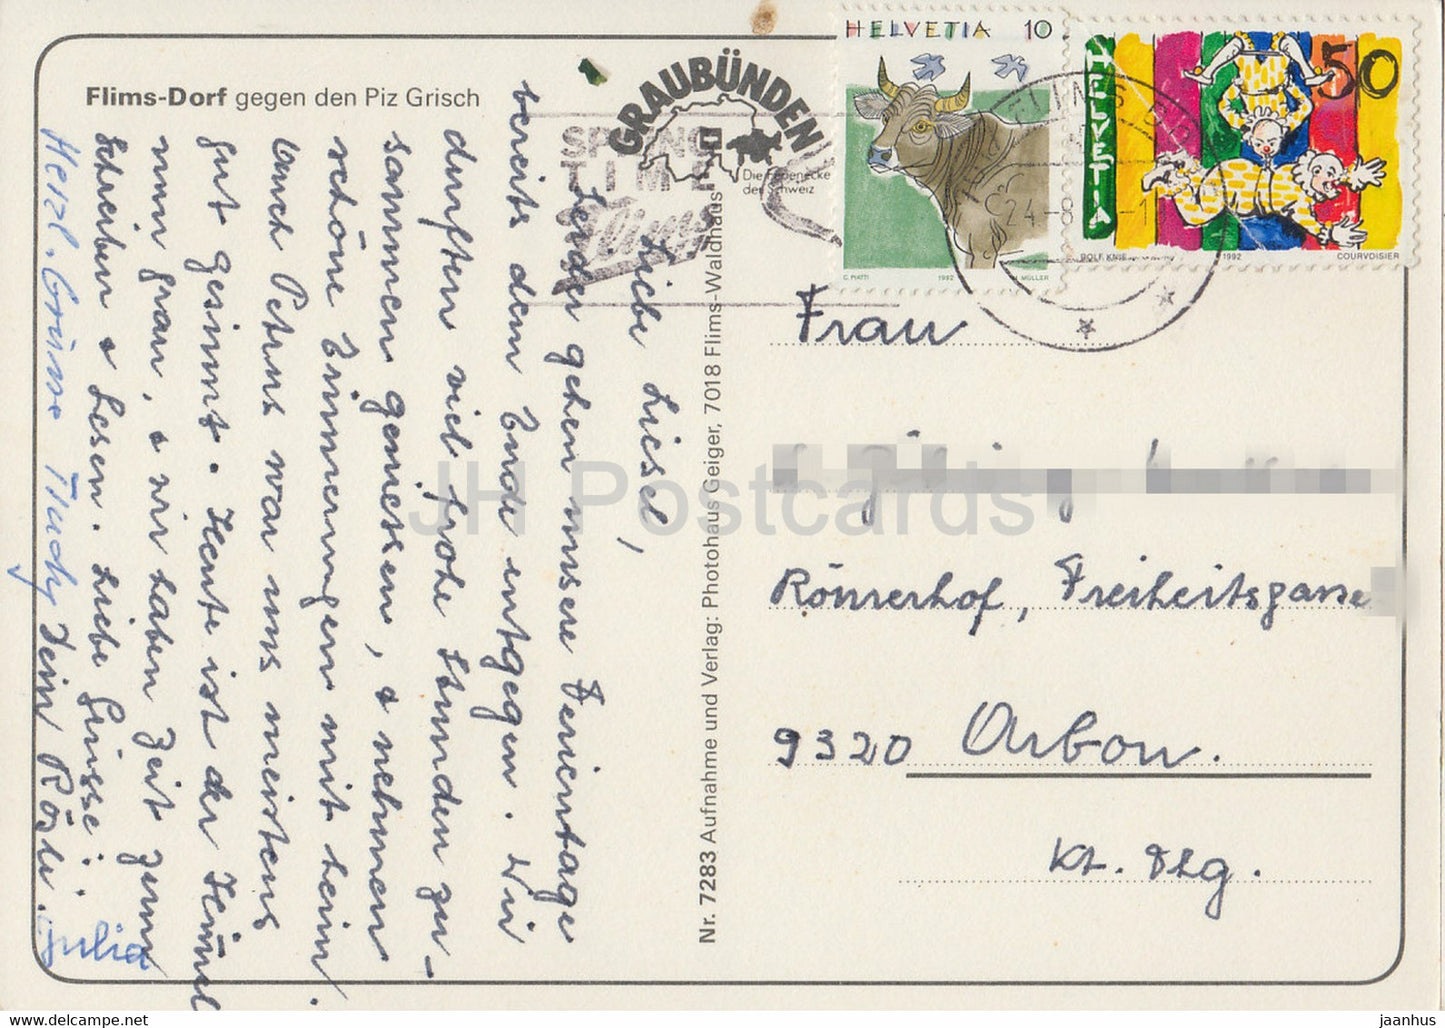 Flims-Dorf gegen den Piz Grisch
Liebe Liesel,
Leider gehen unsere Ferientage
bereits dem Ende entgegen. Wir
durften viel frohe Stunden zu-
sammen geniessen, & nehmen
schöne Erinnerungen mit heim.
Auch Petrus war uns meistens
gut gesinnt. Heute ist der Himmel
nun grau, & wir haben Zeit zum
Schreiben & Lesen. Liebe Grüsse:
Dein Rösli.
Herzl. Grüsse Trudy
Julia
Nr. 7283 Aufnahme und Verlag: Photohaus Geiger, 7018 Flims-Waldhaus
GRAUBÜNDEN
Die Ferienecke
der Schweiz
SPRING
TIME
Flims
HELVETIA 10
C. PIATTI 1992 H. MÜLLER
HELVETIA
50
ROLF KNIE 1992 COURVOISIER
FLIMS DORF
24.-8
Frau
Römerhof, Freiheitsgasse
9320 Arbon.
Kt. Thg.
JH Postcards
jaanhus.com